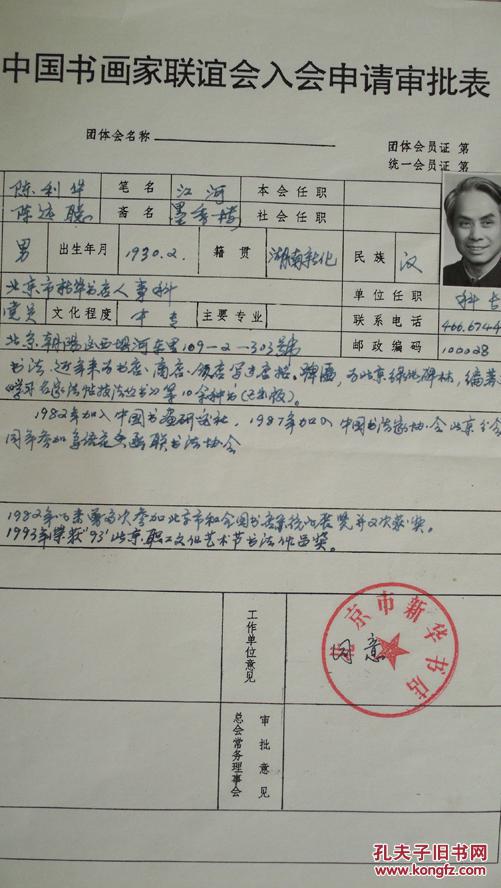 中国书画家联谊会入会申请审批表
团体会名称
团体会员证 第
统一会员证 第
陈利华 笔名 江河 本会任职
陈远聪 斋名 墨香楼 社会任职
男 出生年月 1930.2. 籍贯 湖南新化 民族 汉
北京市新华书店人事科 单位任职 科长
党员 文化程度 中专 主要专业 联系电话 466.6744
北京朝阳区西坝河东里109-2-303号 邮政编码 100028
书法,近年来为书店、商店、饭店写过匾
北京 碑林,编著
10余种书(已出版)。
1982年加入中国书画研究社,1987年加入中国书法家协会北京分会
同年参加 楹联书法协会
1982年以来曾多次参加北京市和全国书店系统的展览并2次获奖。
1993年荣获'93'北京职工文化艺术节书法作品奖。
工作单位意见
同意
北京市新华书店
审批意见
总会常务理事会
孔夫子旧书网
www.kongfz.com